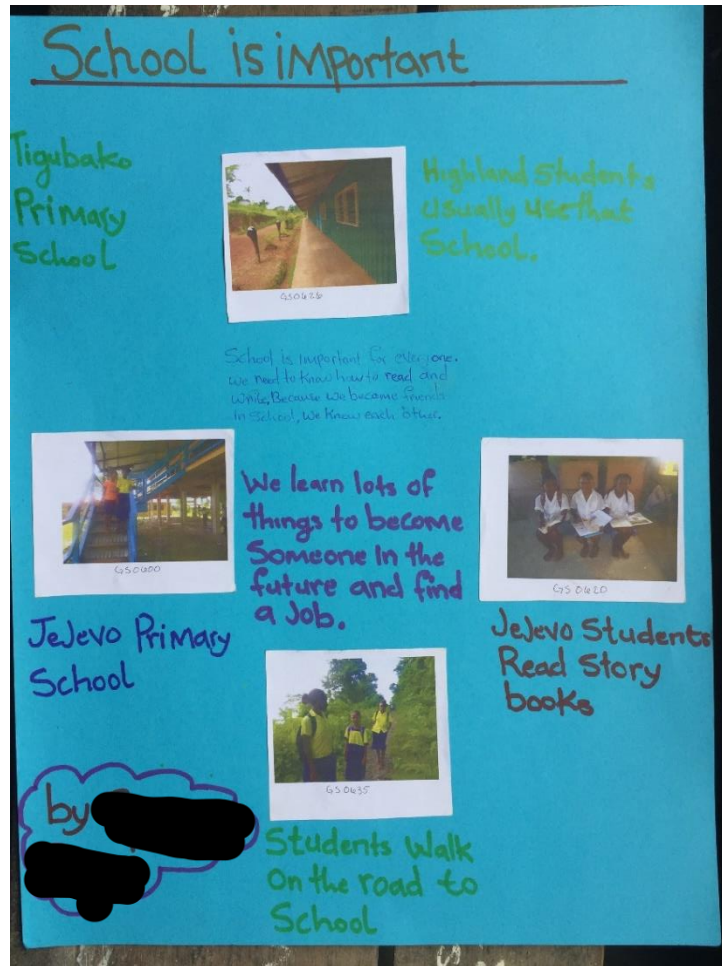 School is important
Tigubako
Primary
School
Highland Students
Usually Use that
School.
GS0426
School is important for everyone.
We need to know how to read and
write, Because we became friends
In School, We Know each other.
GS0400
We learn lots of
things to become
Someone in the
future and find
a Job.
GS0420
JeJevo Primary
School
JeJevo Students
Read Story
books
GS0435
by
Students Walk
On the road to
School